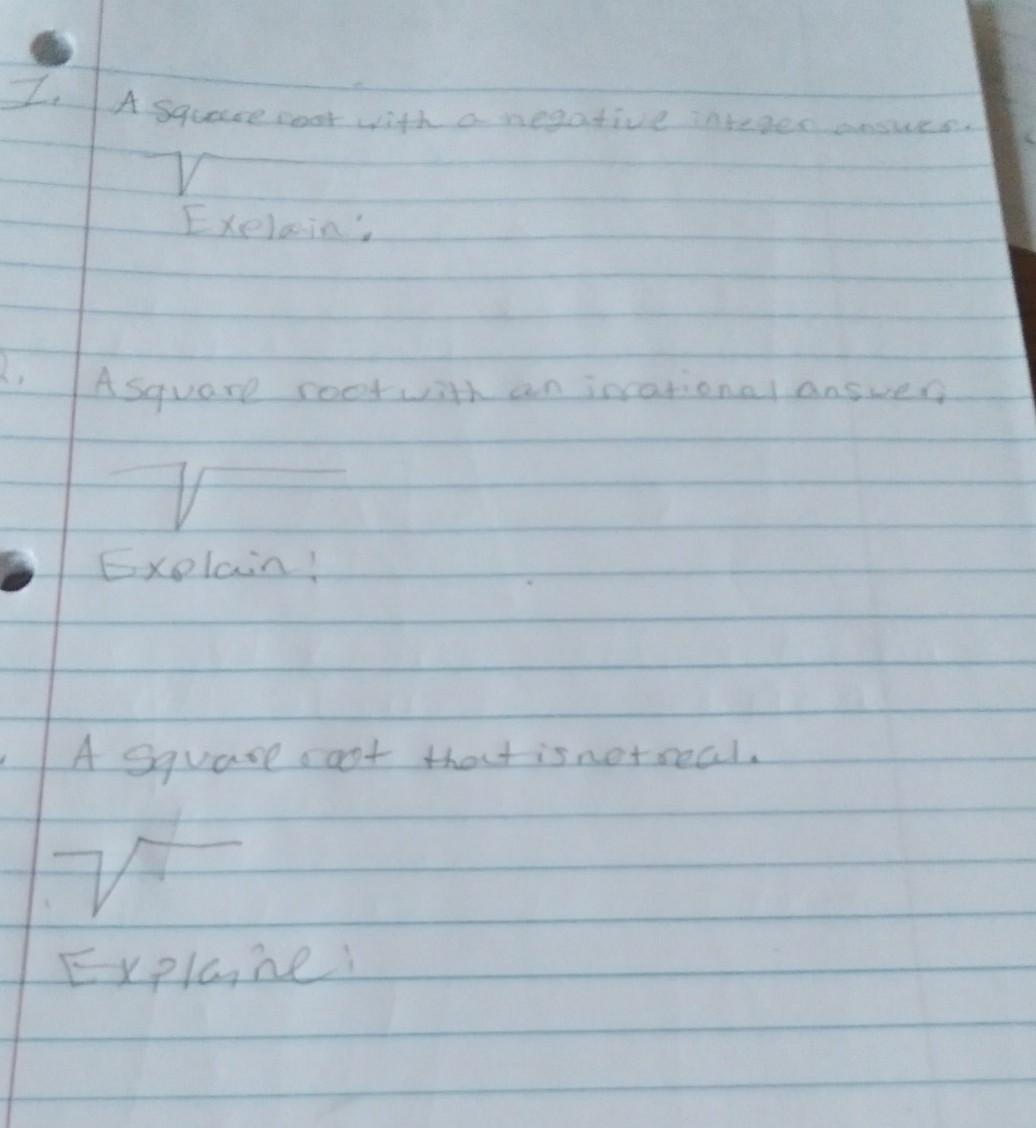 1. A square root with a negative integer answer.
√
Explain:
2. A square root with an irrational answer.
√
Explain:
A square root that is not real.
√
Explaine: